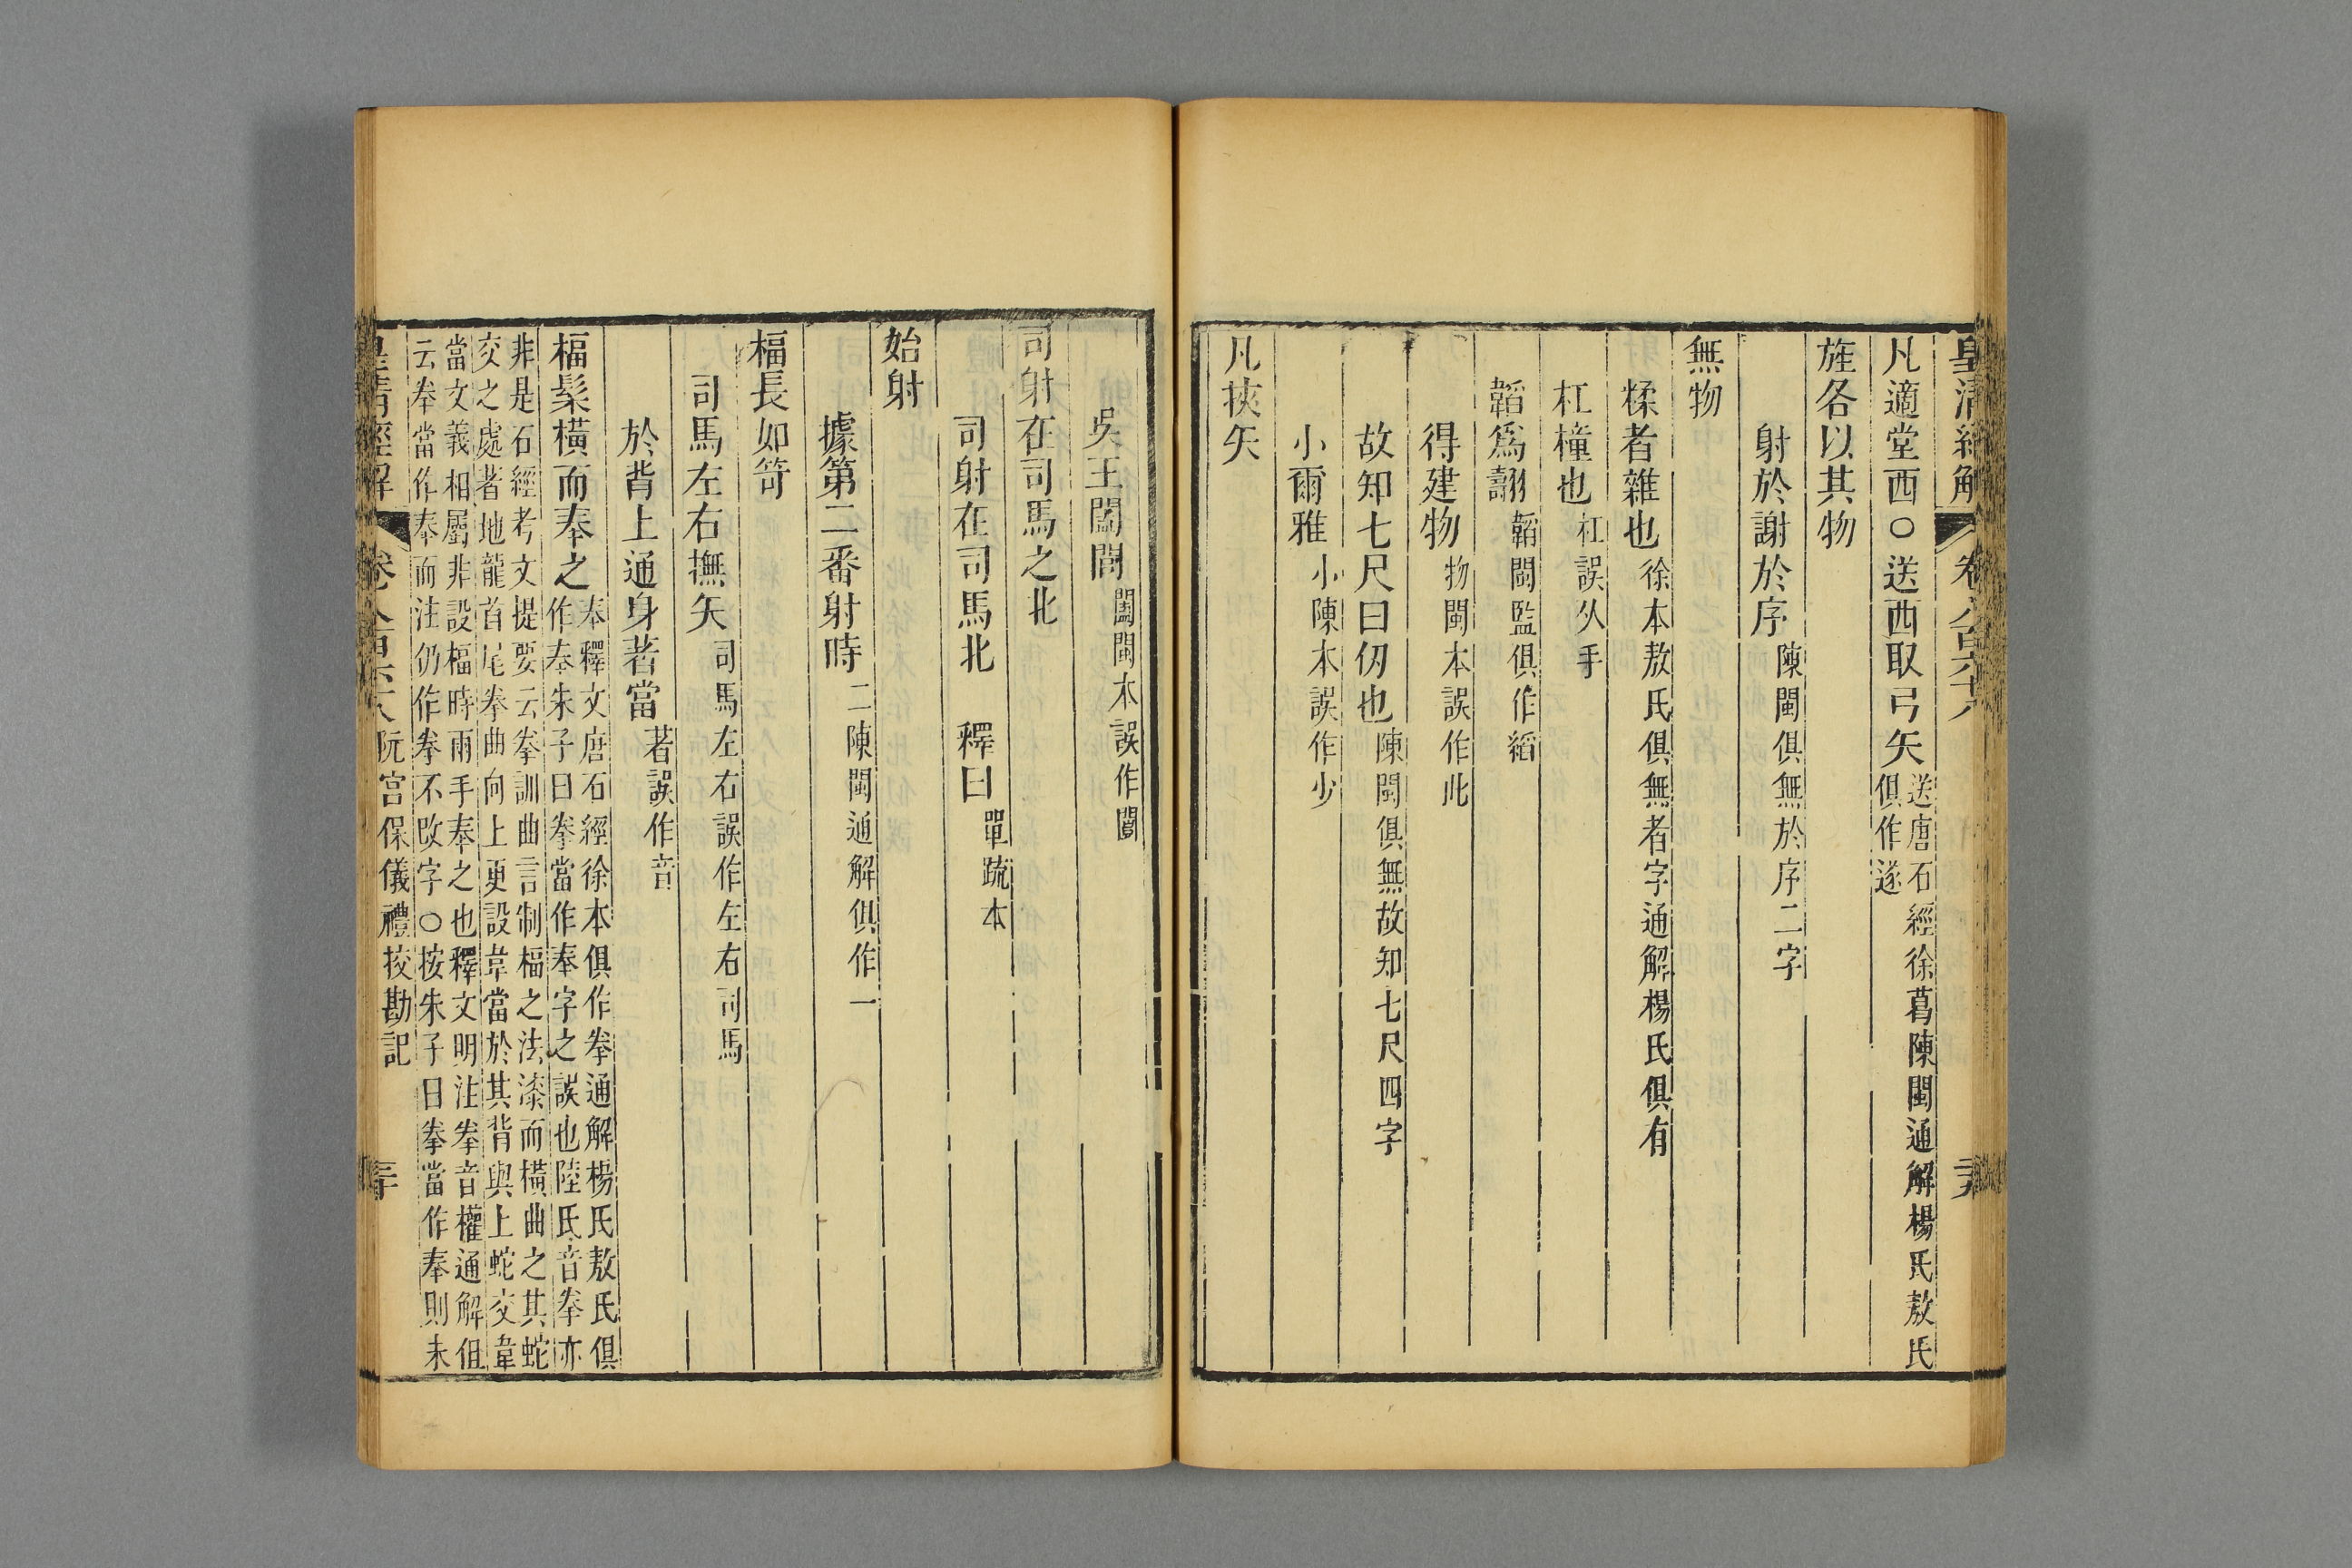 皇清經解 卷八百六十八 无
凡適堂西○送西取弓矢送唐石經徐葛陳閩通解楊氏敖氏
俱作遂
旌各以其物
射於謝於序陳閩俱無於序二字
無物
糅者雜也徐本敖氏俱無者字通解楊氏俱有
杠橦也杠誤从手
韜爲翿韜閩監俱作縚
得建物物閩本誤作此
故知七尺曰仞也陳閩俱無故知七尺四字
小爾雅小陳本誤作少
凡挾矢
吳王闔閭闔閩本誤作闔
司射在司馬之北
司射在司馬北 釋曰單疏本
始射
據第二番射時二陳閩通解俱作一
楅長如笴
司馬左右撫矢司馬左右誤作左右司馬
於背上通身著當著誤作音
楅髤橫而奉之奉釋文唐石經徐本俱作拳通解楊氏敖氏俱
作奉朱子曰拳當作奉字之誤也陸氏音拳亦
非是石經考文提要云拳訓曲言制楅之法漆而橫曲之其蛇
交之處者地龍首尾拳曲向上更設韋當於其背與上蛇交韋
當文義相屬非設楅時兩手奉之也釋文明注拳音權通解但
云奉當作奉而注仍作拳不改字○按朱子曰拳當作奉則未
皇清經解 卷八百六十八 阮宮保儀禮挍勘記